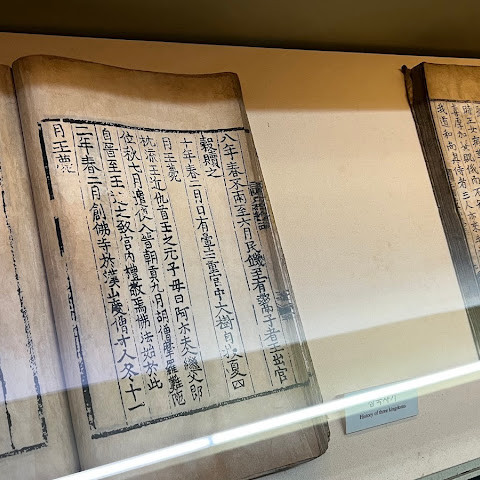 八年春不雨至六月民饑至有鬻子者王出官
穀贖之
十年春二月日有暈三重宮中大樹自拔夏四
月王薨
枕流王近仇首王之元子母曰阿尒夫人繼父即
位秋七月遣使入晉朝貢九月胡僧摩羅難陁
自晉至王迎之致宮內禮敬焉佛法始於此
二年春二月創佛寺於漢山度僧十人冬十一
月王薨
我道和尚與侍者三
삼국사기
History of three kingdoms